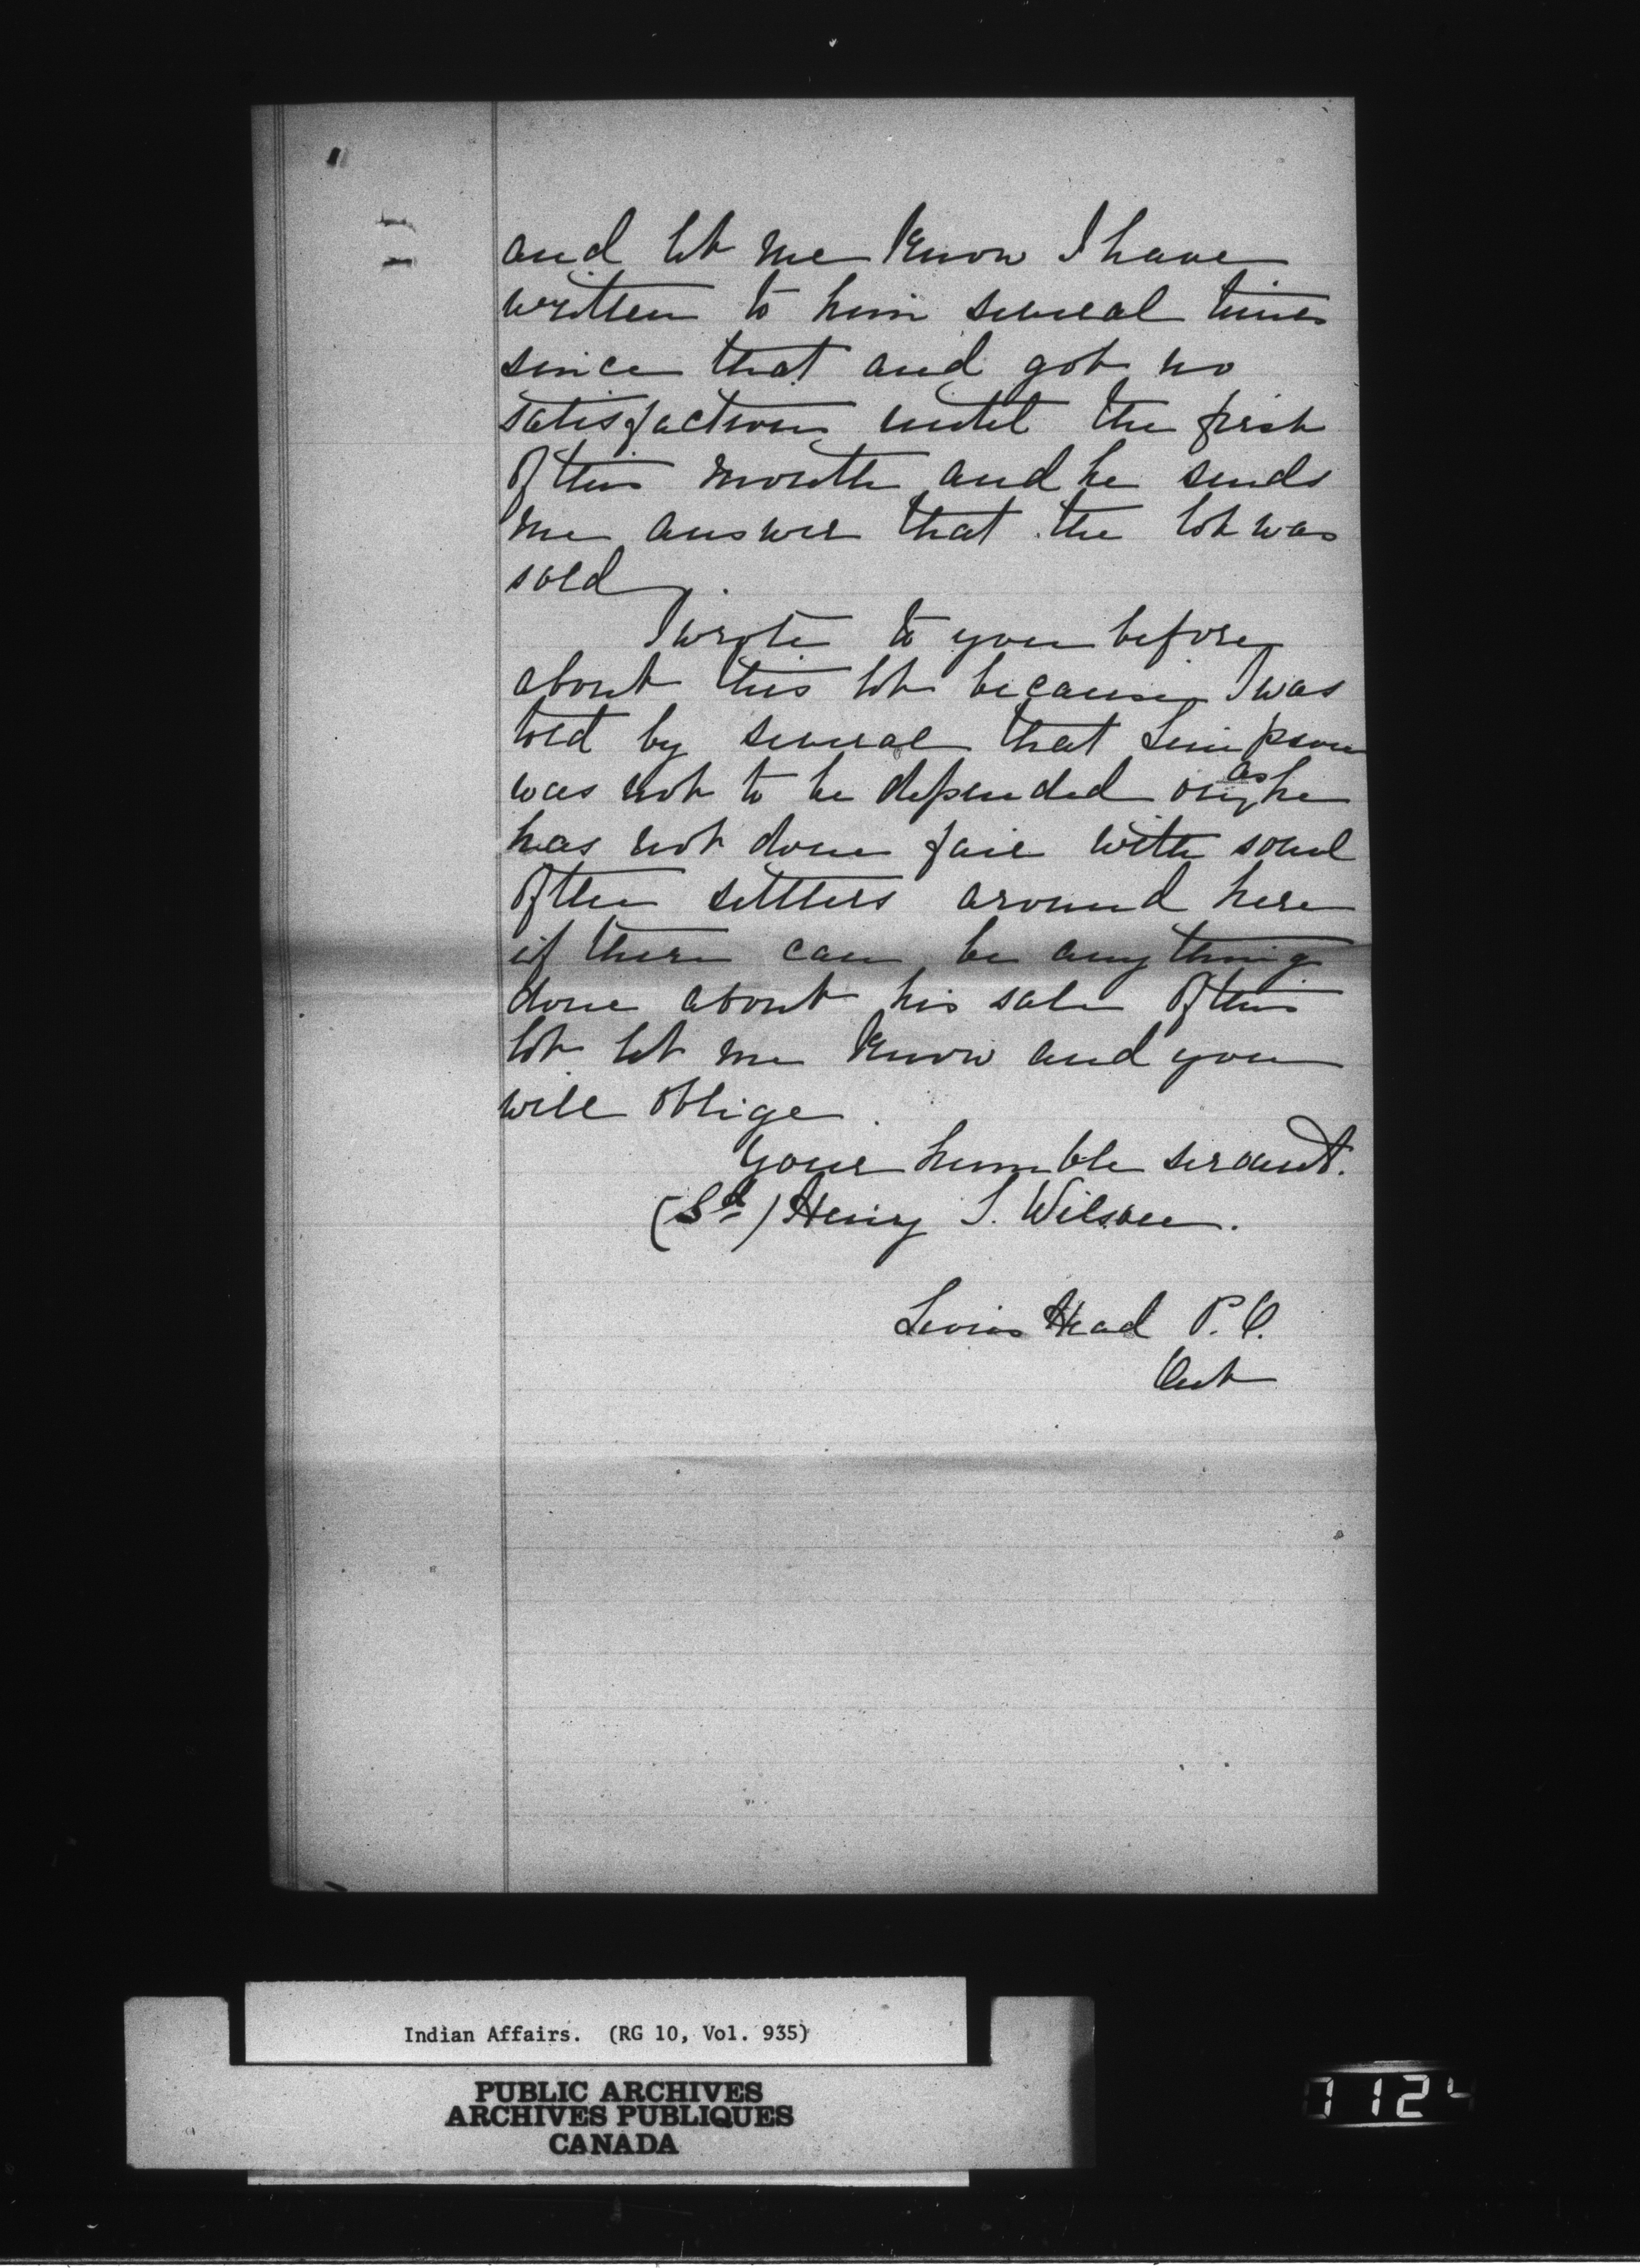 and let me know I have
written to him several times
since that and got no
satisfaction until the first
of this month and he sends
me answer that the lot was
sold.
I wrote to you before
about this lot because I was
told by several that Simpson
was not to be depended on, as he
has not done fair with some
of the settlers around here
if there can be anything
done about his sale of this
lot let me know and you
will oblige.
Your humble servant.
(Sd) Henry S. Wilson.
Lions Head P.O.
Ont
Indian Affairs. (RG 10, Vol. 935)
PUBLIC ARCHIVES
ARCHIVES PUBLIQUES
CANADA
1124